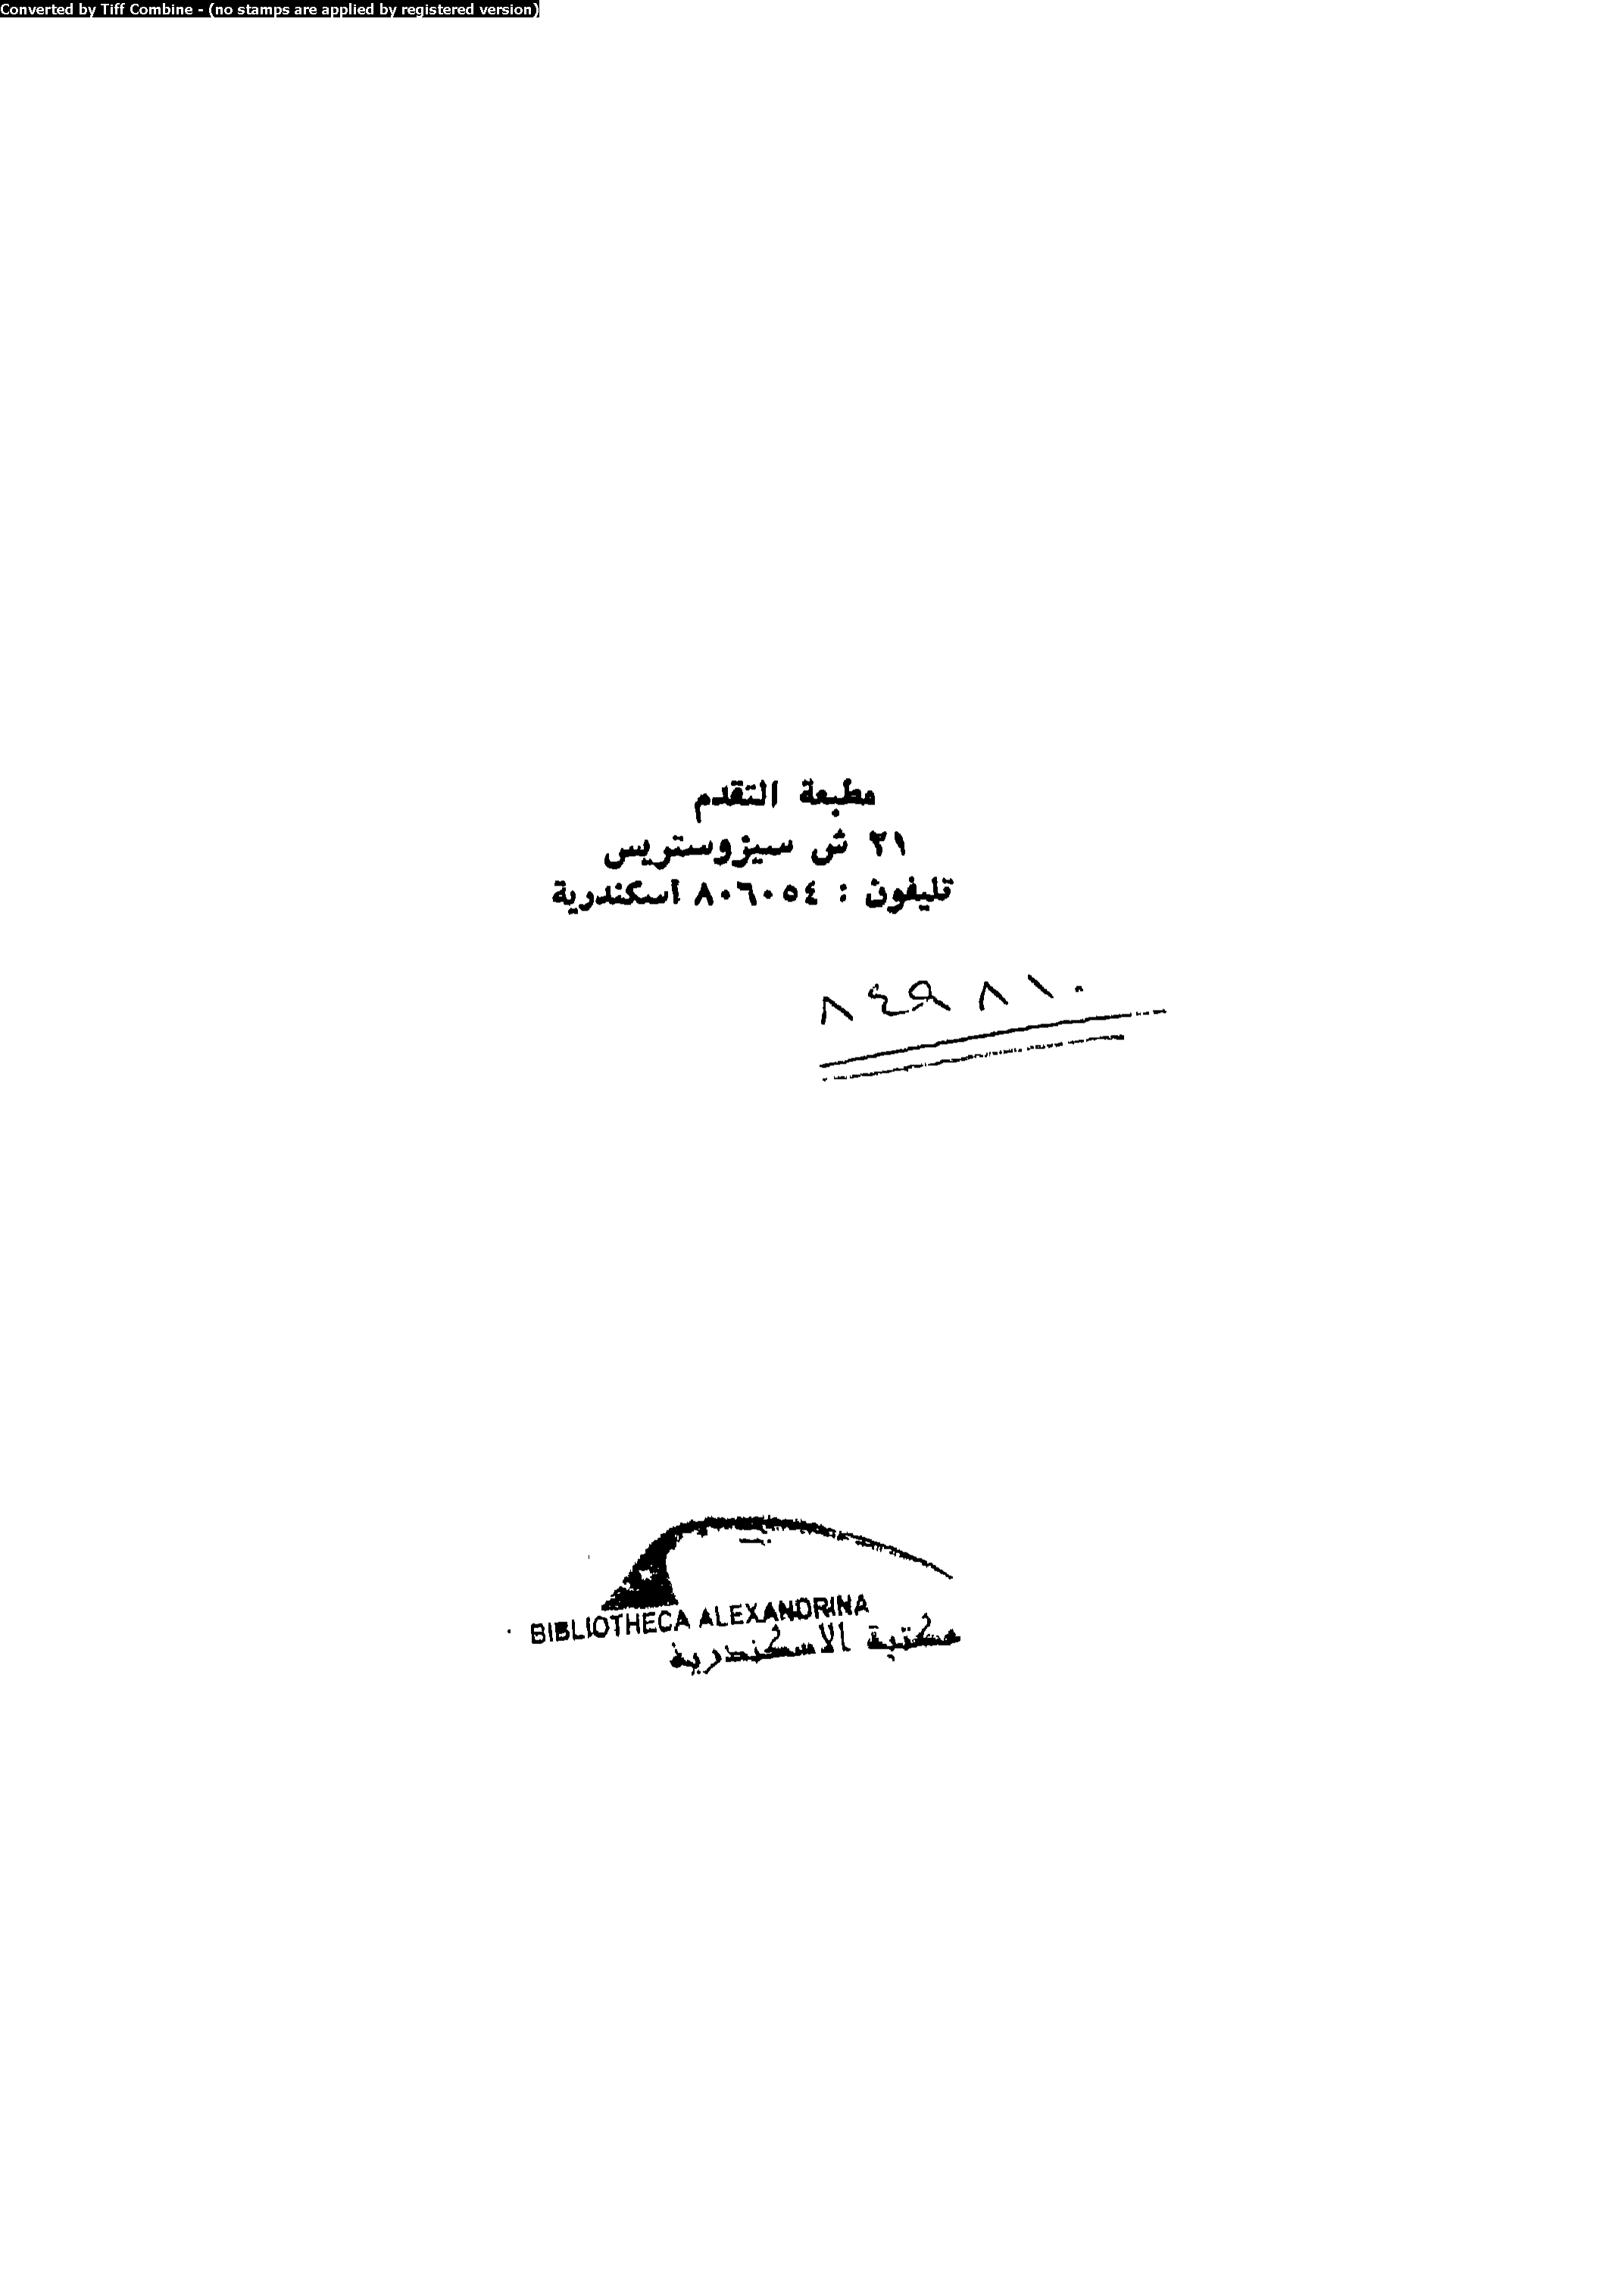 Converted by Tiff Combine - (no stamps are applied by registered version)
مطبعة التقدم
٢١ ش سيزوستريس
تليفون : ٨٠٦٠٥٤ اسكندرية
٨٤٩٨١٠
BIBLIOTHECA ALEXANDRINA
مكتبة الاسكندرية